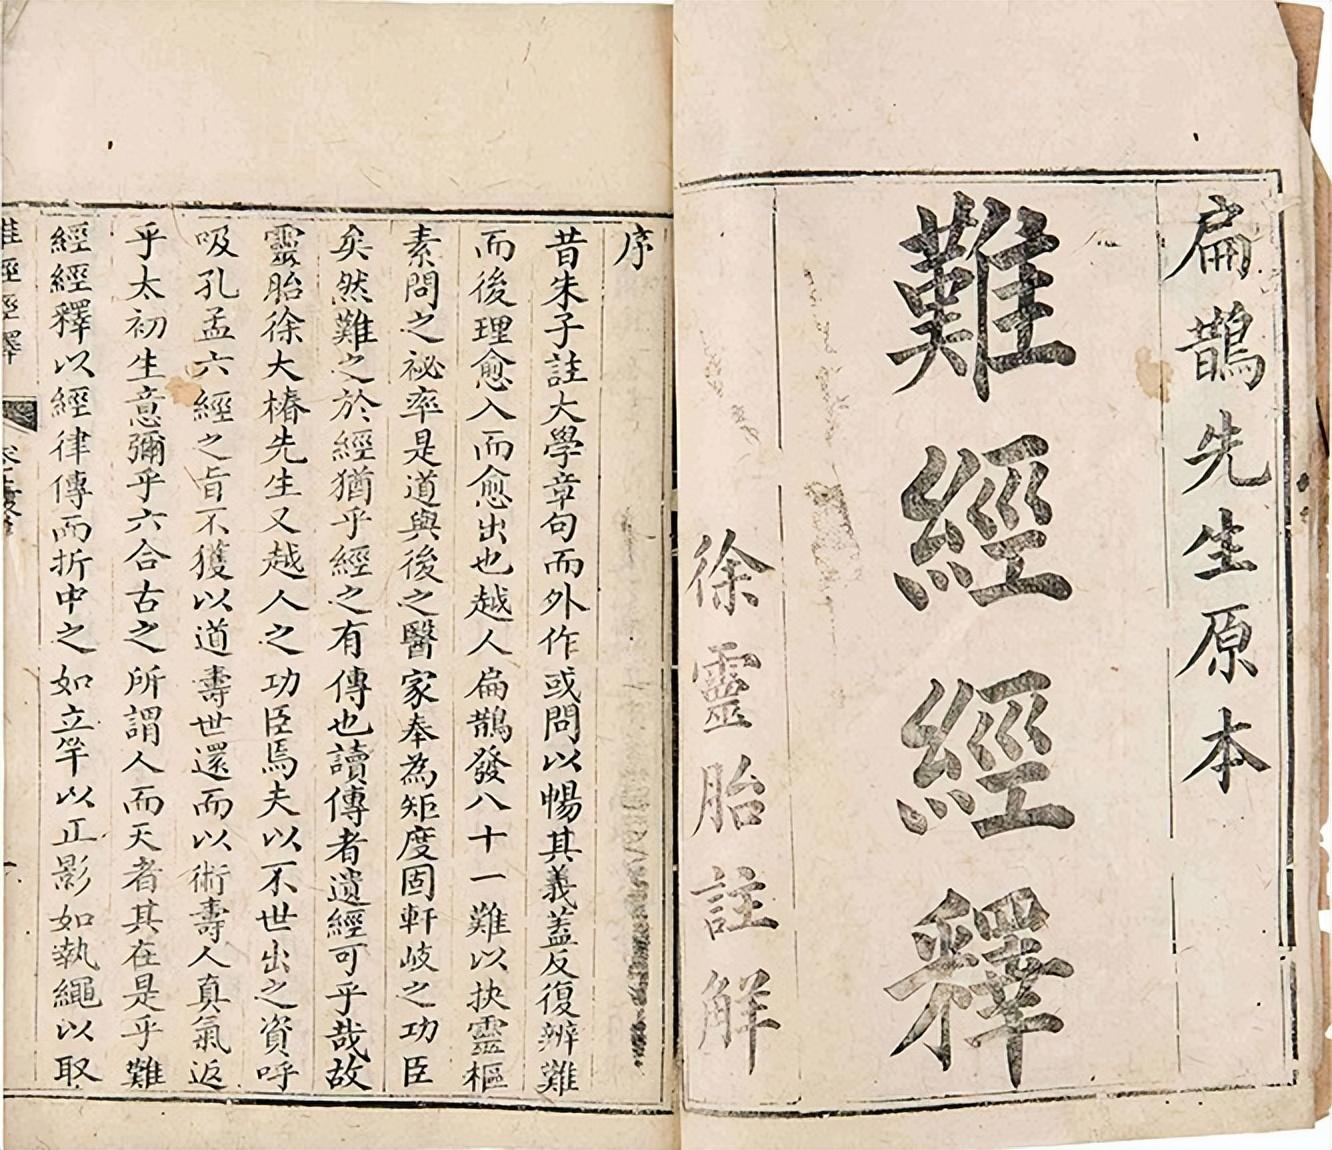 扁鵲先生原本
難經經釋
徐靈胎註解
序
昔朱子註大學章句而外作或問以暢其義蓋反復辨難
而後理愈入而愈出也越人扁鵲發八十一難以抉靈樞
素問之祕率是道與後之醫家奉為矩度固軒岐之功臣
矣然難之於經猶乎經之有傳也讀傳者遺經可乎哉故
靈胎徐大椿先生又越人之功臣焉夫以不世出之資呼
吸孔孟六經之旨不獲以道壽世還而以術壽人真氣返
乎太初生意彌乎六合古之所謂人而天者其在是乎難
經經釋以經律傳而折中之如立竿以正影如執繩以取
難經經釋